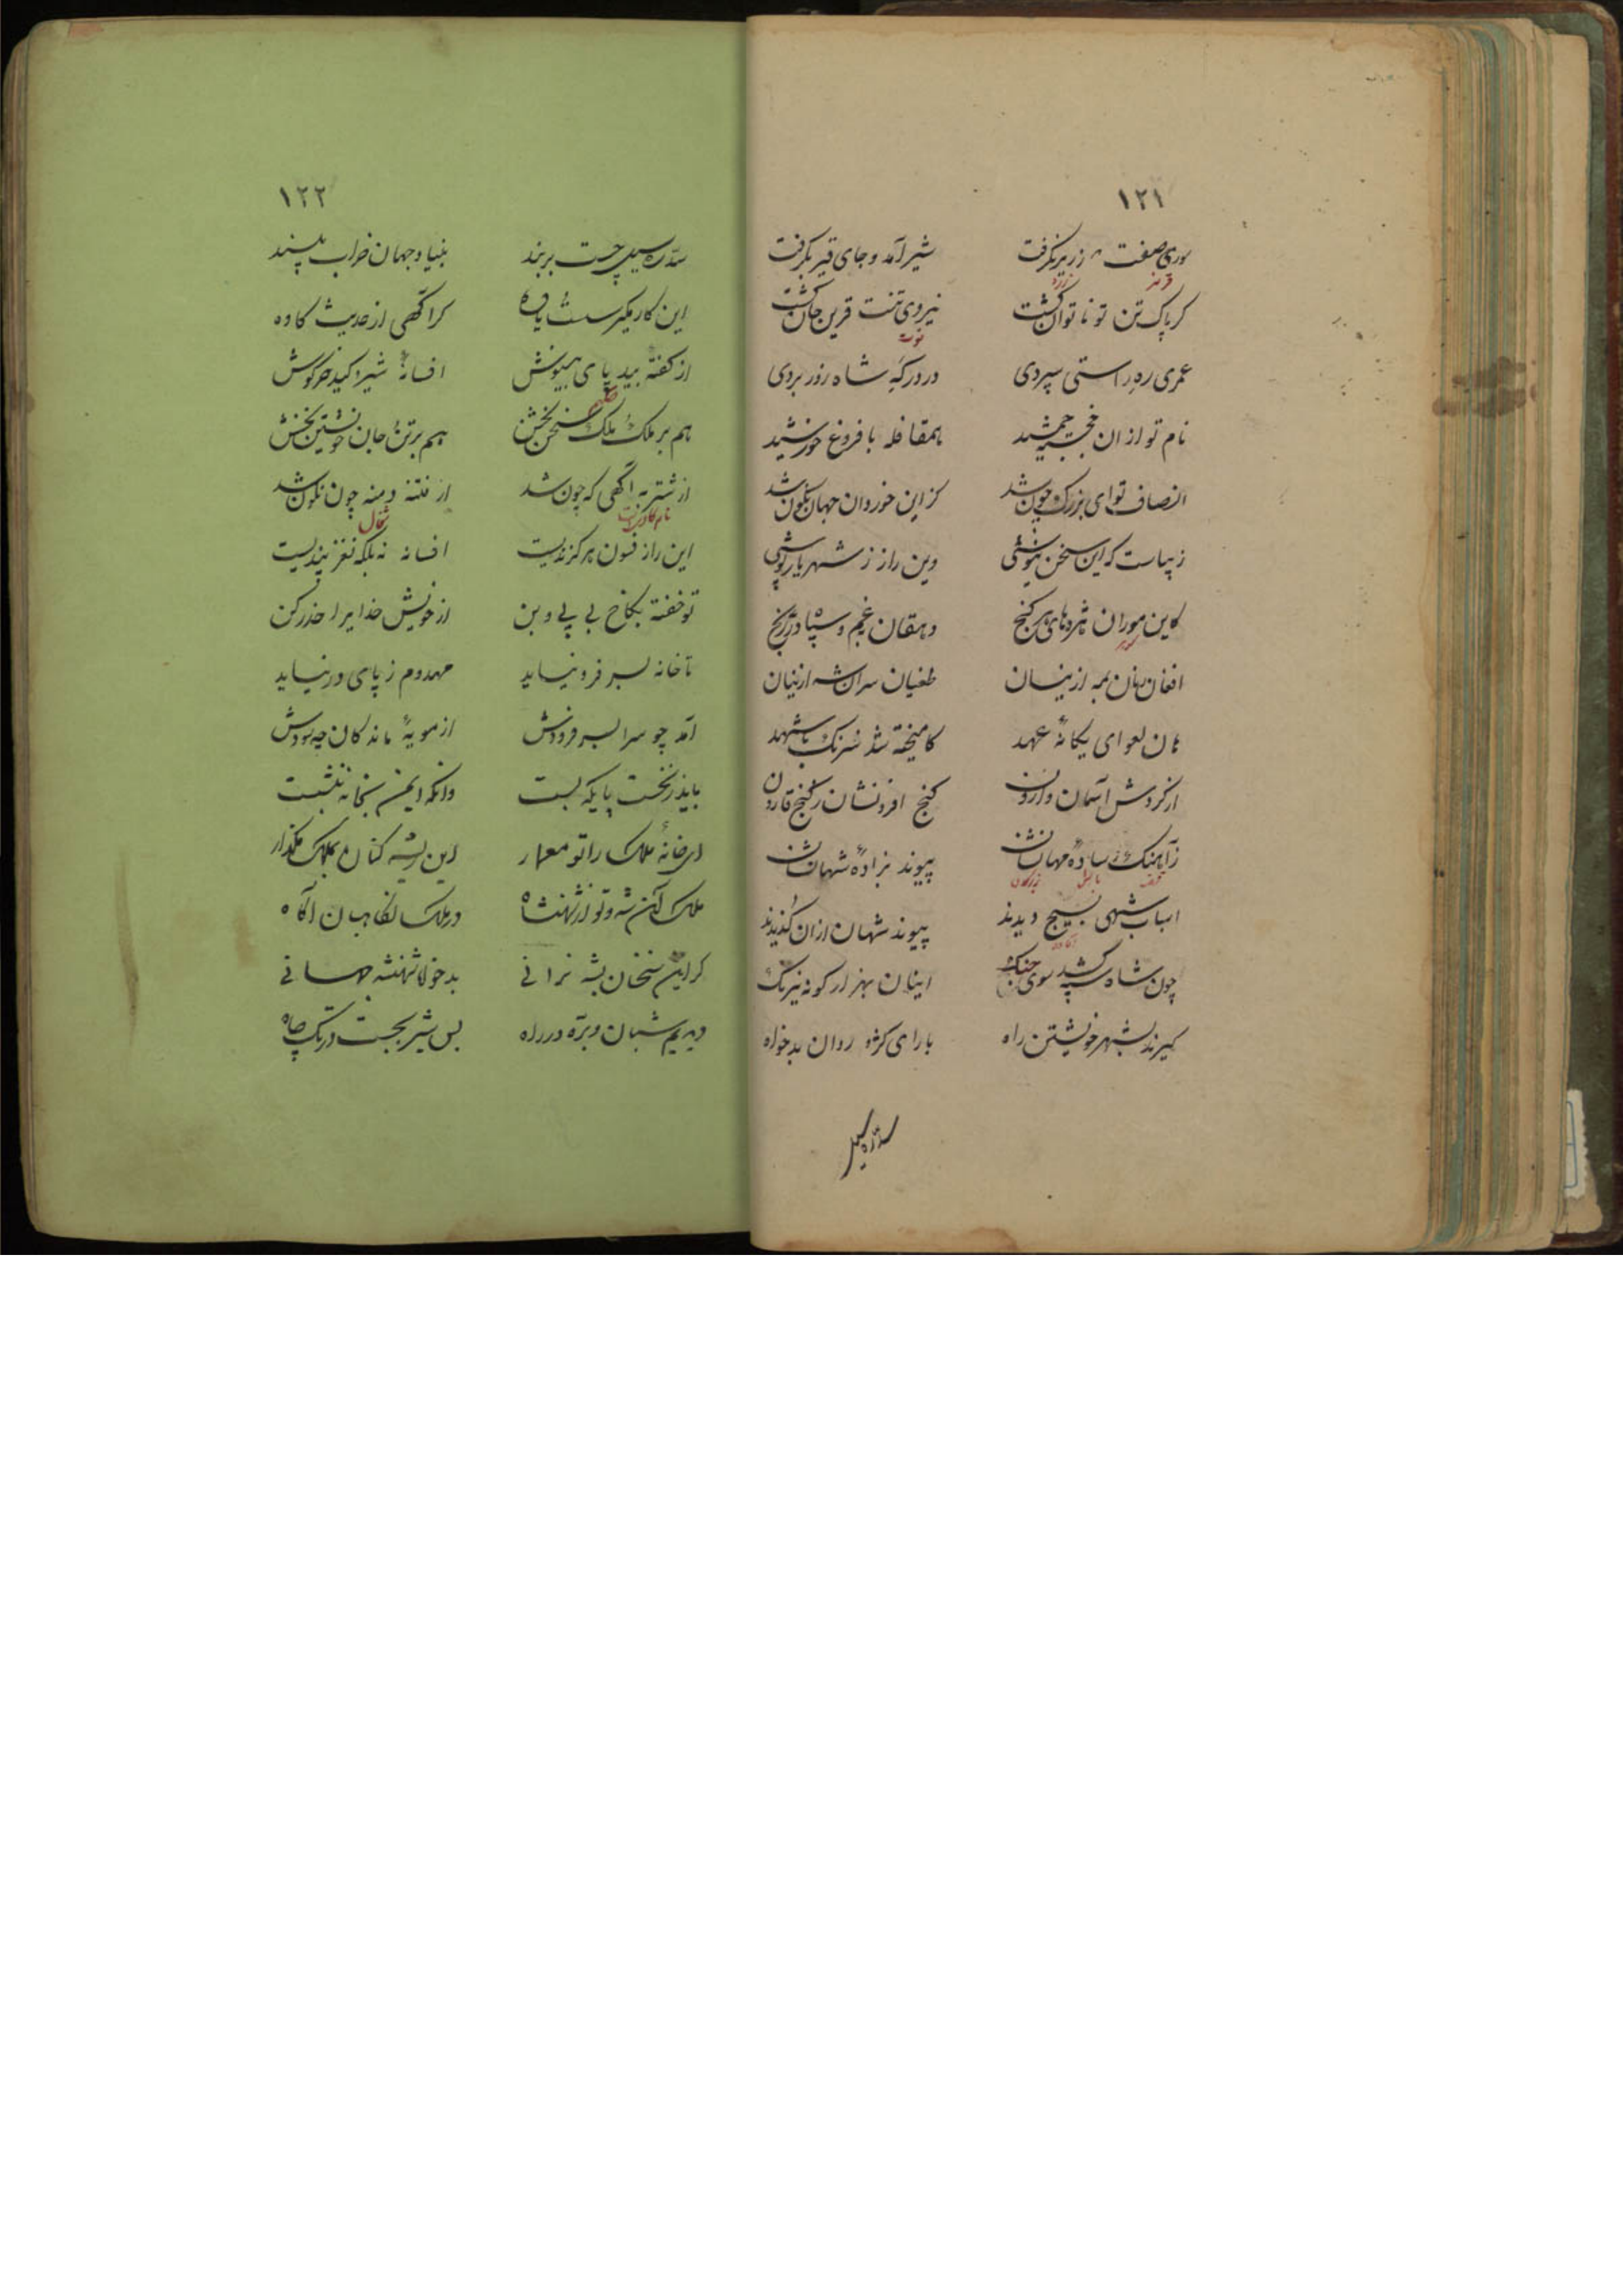 ۱۲۱
صفت زریر نگرفت شیر آمد و جای قیر بگرفت
گر پاک تن تو ناتوان گشت نیروی تنت قرین جان گشت
عمری ره راستی سپردی در درگه شاه روز بردی
نام تو از ان خجسته جمشید همقافله با فروغ خورشید
انصاف تو ای بزرگ چون شد کز این خوردان جهان نگون شد
زیباست که این سخن نیوشی وین راز ز شهریار پوشی
کاین موران اژدهای هر گنج دهقان غم و سپاه در رنج
افغان همه ازینسان طغیان سران شه ازینان
هان ای یگانهٔ عهد کامیخته شد شرنگ با شهد
از گردش آسمان وارون گنج افزونشان ز گنج قارون
زاهنگ سادهٔ مهانشان پیوند بزادهٔ شهانشان
اسباب شهی بسیج دیدند پیوند شهان از ان گزیدند
چون شاه کشد سپه سوی جنگ اینان بهزار گونه نیرنگ
گیرند بشهر خویشتن راه با رای کژ و روان بدخواه
سد ره سیل
۱۲۲
سد ره سیل چست بربند بنیاد جهان خراب مپسند
این کار مگیر سست یاوه گر آگهی از حدیث کاوه
از گفته بیدپای بینوش افسانهٔ شیر و کید خرگوش
هم بر ملک ملک سخن بخش هم بر تن جان خویشتن بخش
از شتربه آگهی که چون شد از فتنه دمنه چون نگون شد
نام گاویست شغال
این راز فسون هرگز نیست افسانه نه بلکه نغز پندیست
تو خفته بکاخ بی پی و بن از خویش خدایرا حذر کن
تا خانه بسر فرو نیاید مهدوم ز پای در نیاید
آمد چو سرا بسر فرودش از مویهٔ ماندگان چه سودش
باید ز نخست پایگه بست وانگه ایمن بخانه بنشست
ای خانهٔ ملک را تو معمار این ریشه کنان بملک مگذار
ملک آن شه و تو از شهنشاه در ملک نگاهبان آگاه
گر این سخنان بشه نرانی بدخواه شهنشه جهانی
دیدیم شبان و بره در راه بس شیر بجست در تک چاه